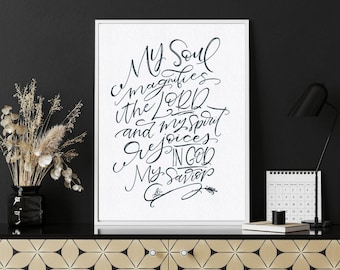 My Soul
magnifies
the LORD
and my spirit
rejoices
IN GOD
My Savior